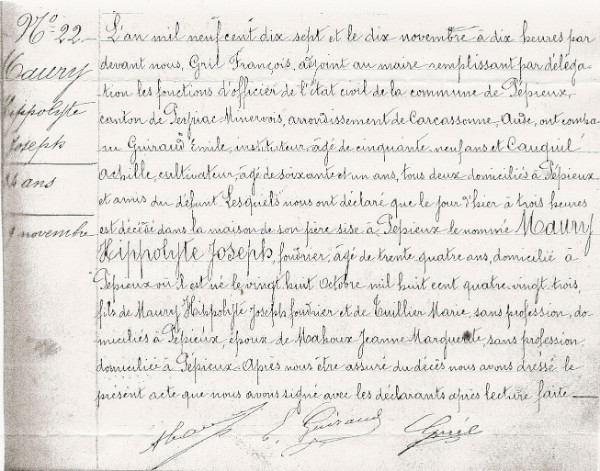 N° 22
Maury
Hippolyte
Joseph
34 ans
9 novembre
L'an mil neuf cent dix sept et le dix novembre à dix heures par
devant nous, Gril François, adjoint au maire remplissant par déléga-
tion les fonctions d'officier de l'état civil de la commune de Pépieux,
canton de Peyriac Minervois, arrondissement de Carcassonne, Aude, ont compa-
ru Guiraud Emile, instituteur, âgé de cinquante neuf ans et Cauquil
Achille, cultivateur, âgé de soixante et un ans, tous deux domiciliés à Pépieux
et amis du défunt Lesquels nous ont déclaré que le jour d'hier à trois heures
est décédé dans la maison de son père sise à Pépieux le nommé Maury
Hippolyte Joseph, foudrier, âgé de trente quatre ans, domicilié à
Pépieux où il est né le vingt huit Octobre mil huit cent quatre vingt trois,
fils de Maury Hippolyte Joseph foudrier et de Tuillier Marie, sans profession, do-
miciliés à Pépieux, époux de Mahoux Jeanne Marguerite, sans profession,
domiciliée à Pépieux. Après nous être assuré du décès nous avons dressé le
présent acte que nous avons signé avec les déclarants après lecture faite
E. Guiraud